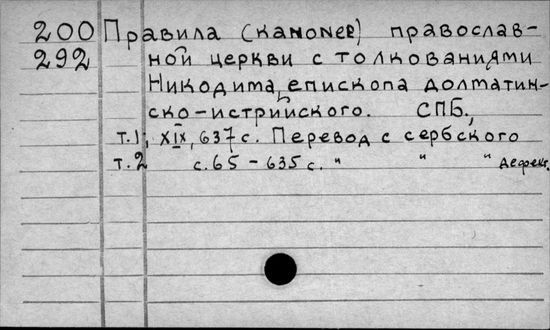 200 Правила (каноне) православ-
292 ной церкви с толкованиями
Никодима, епископа долматин-
ско-истрийского. СПБ.,
т.1, XIX, 637 с. Перевод с сербского
т.2 с.65 – 635 с. " " " дефект.